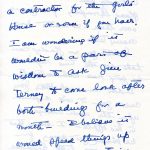 a contractor for the girls'
house or room if you hear.
I am wondering if it
wouldn't be a part of
wisdom to ask Jim
Terney to come look after
both buildings for a
month - I believe it
would speed things up